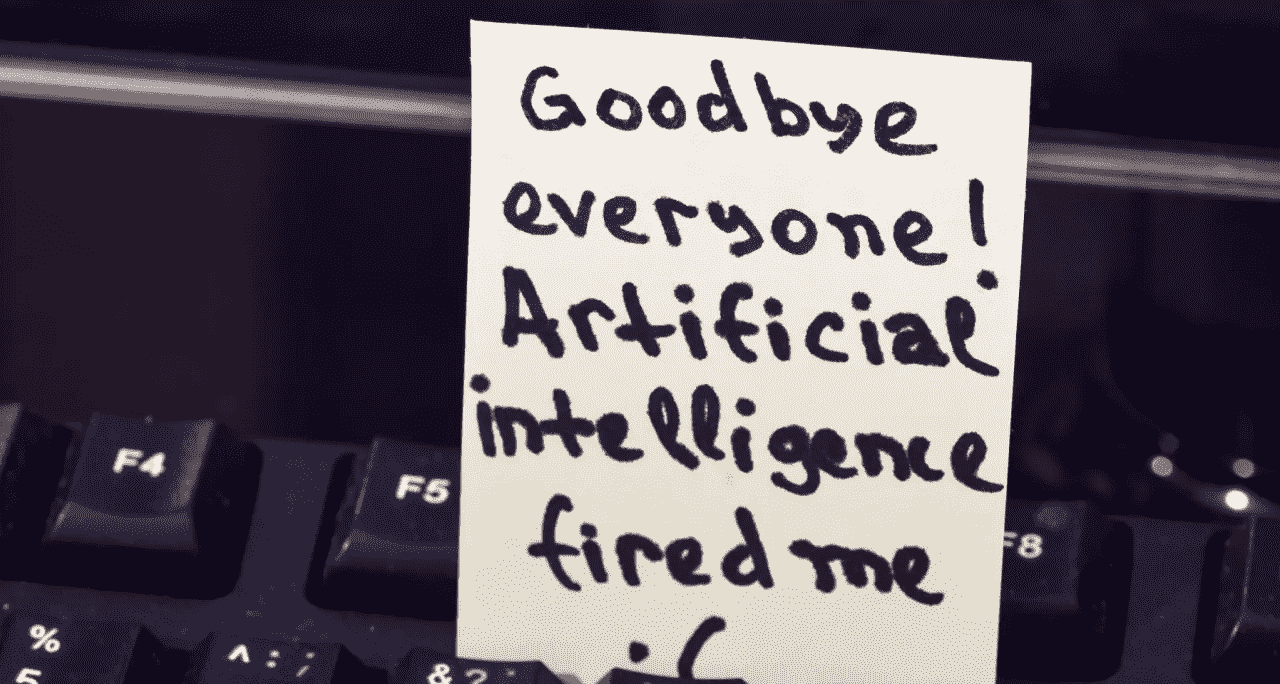 Goodbye
everyone!
Artificial
intelligence
fired me
:(
F4
F5
F8
%
5
^ : ;
& ?